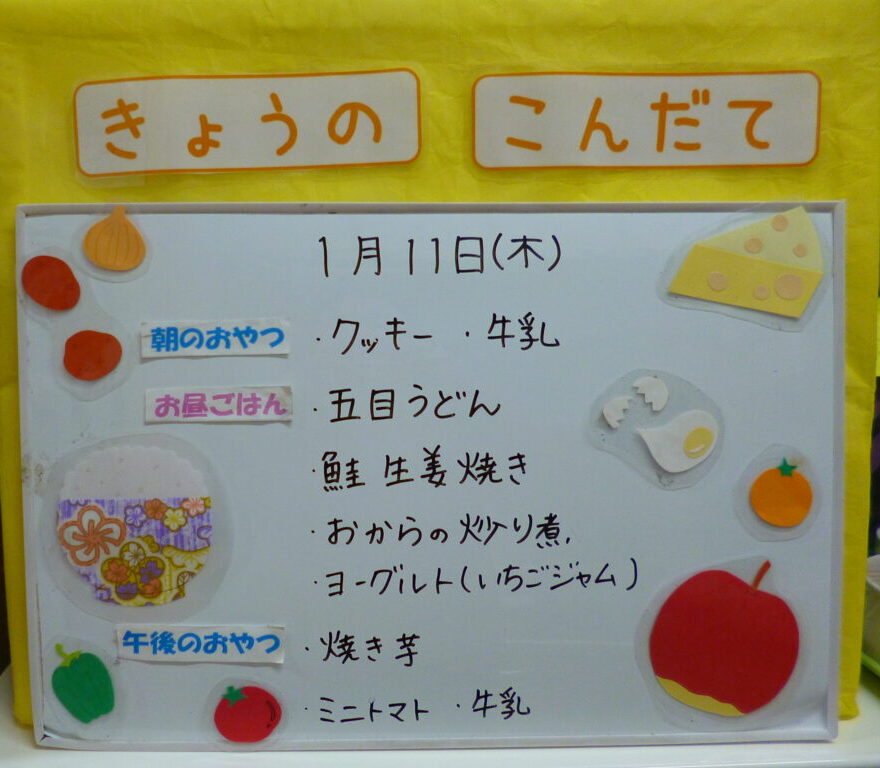 きょうの こんだて
1月11日(木)
朝のおやつ ・クッキー ・牛乳
お昼ごはん ・五目うどん
・鮭 生姜焼き
・おからの炒り煮
・ヨーグルト(いちごジャム)
午後のおやつ ・焼き芋
・ミニトマト ・牛乳